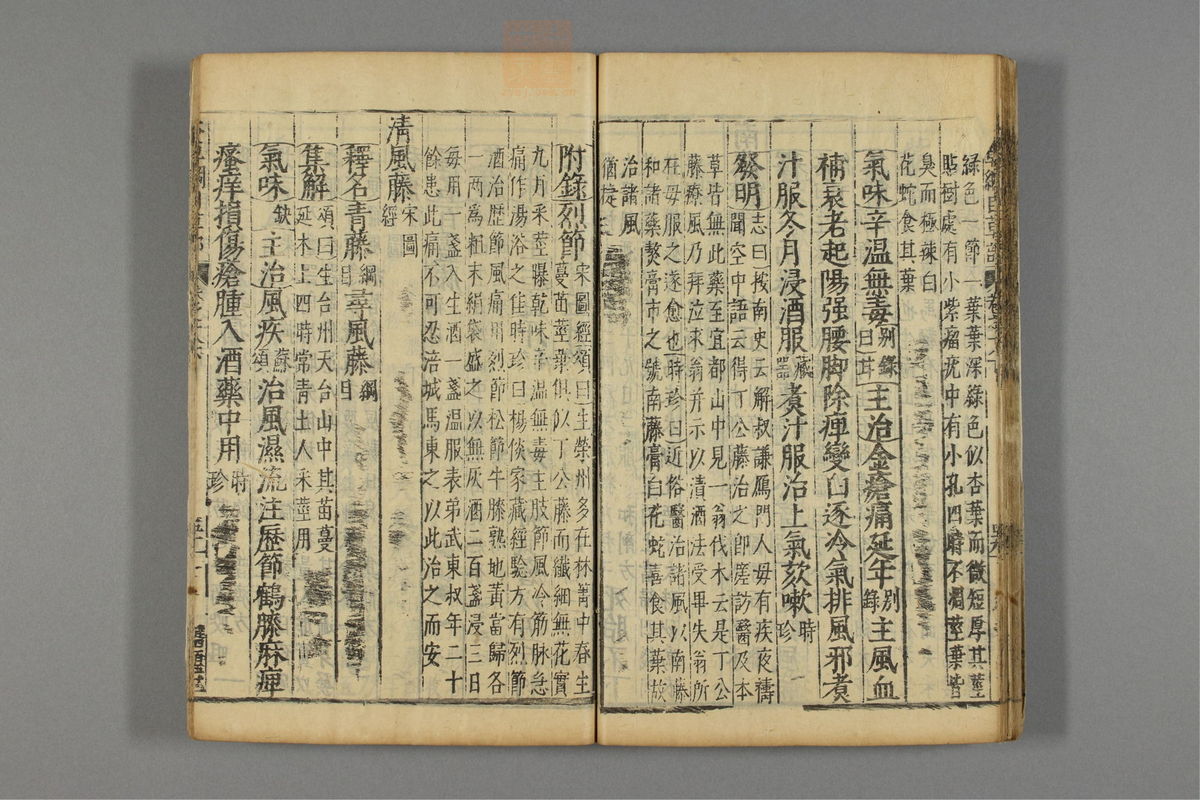 綠色一節一葉葉深綠色似杏葉而微短厚其莖
貼樹處有小紫瘤疣中有小孔四時不凋莖葉皆
臭而極辣白
花蛇食其葉
氣味辛温無毒别錄曰耳主治金瘡痛延年别錄主風血
補衰老起陽强腰脚除痺變白逐冷氣排風邪煮
汁服冬月浸酒服藏器煮汁服治上氣欬嗽時珍
發明志曰按南史云解叔謙鴈門人母有疾夜禱
聞空中語云得丁公藤治之即瘥訪醫及本
草皆無此藥至宜都山中見一翁伐木云是丁公
藤療風乃拜泣求翁并示以漬酒法受畢失翁所
在母服之遂愈也時珍曰近俗醫治諸風以南藤
和諸藥熬膏市之號南藤膏白花蛇喜食其葉故
治諸風
猶捷
附錄烈節宋圖經頌曰生榮州多在林箐中春生
蔓苗莖葉俱似丁公藤而纖細無花實
九月采莖曝乾味辛温無毒主肢節風冷筋脉急
痛作湯浴之佳時珍曰楊倓家藏經驗方有烈節
酒治歷節風痛用烈節松節牛膝熟地黄當歸各
一兩為粗末絹袋盛之以無灰酒二百盞浸三日
每用一盞入生酒一盞温服表弟武東叔年二十
餘患此痛不可忍涪城馬東之以此治之而安
清風藤宋圖經
釋名青藤綱目尋風藤綱目
集解頌曰生台州天台山中其苗蔓
延木上四時常青土人采莖用
氣味缺主治風疾蘇頌治風濕流注歷節鶴膝麻痺
瘙痒損傷瘡腫入酒藥中用時珍